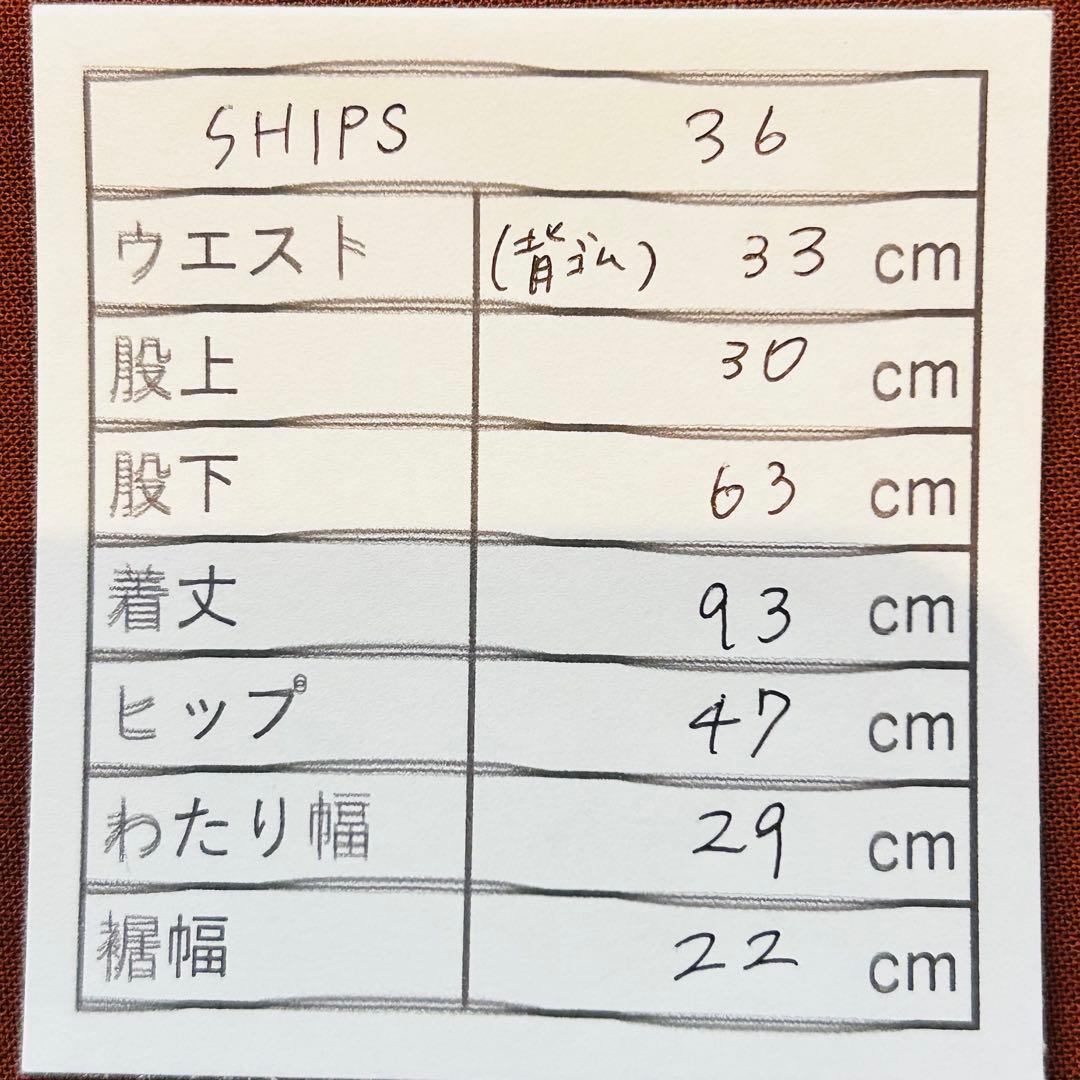 SHIPS 36
ウエスト (背ゴム) 33 cm
股上 30 cm
股下 63 cm
着丈 93 cm
ヒップ 47 cm
わたり幅 29 cm
裾幅 22 cm